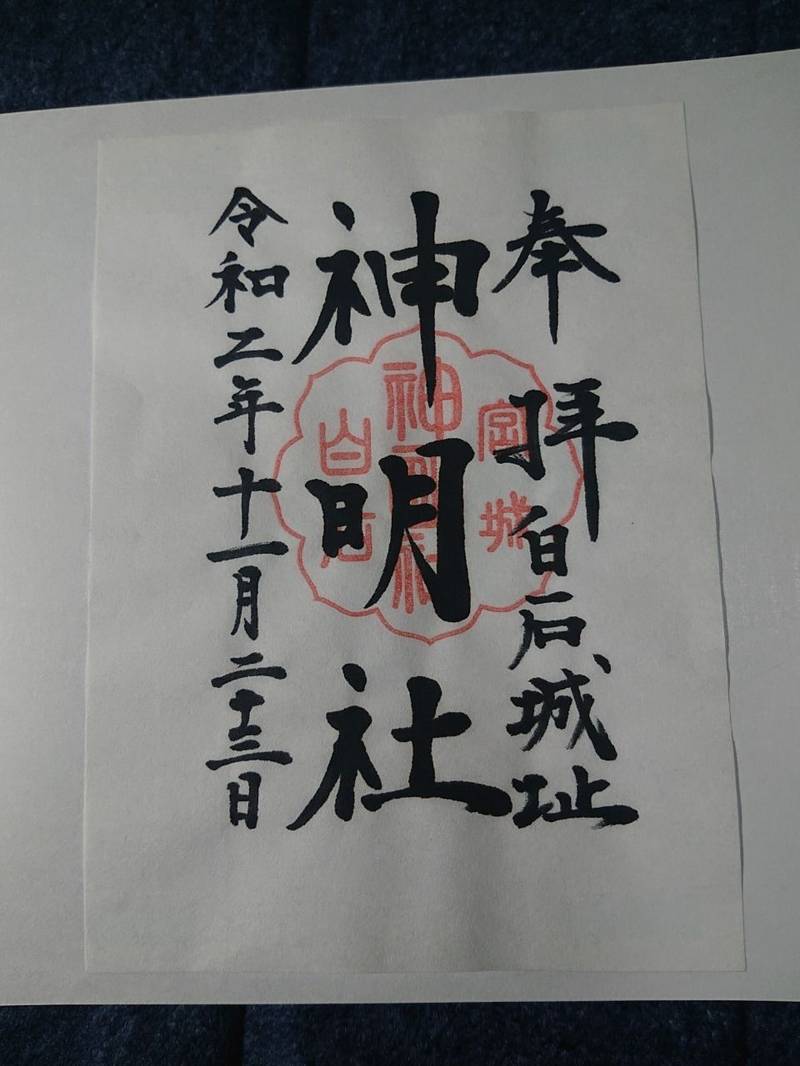 奉拝 白石城址
神明社
令和二年十一月二十三日
宮城
神明社
白石